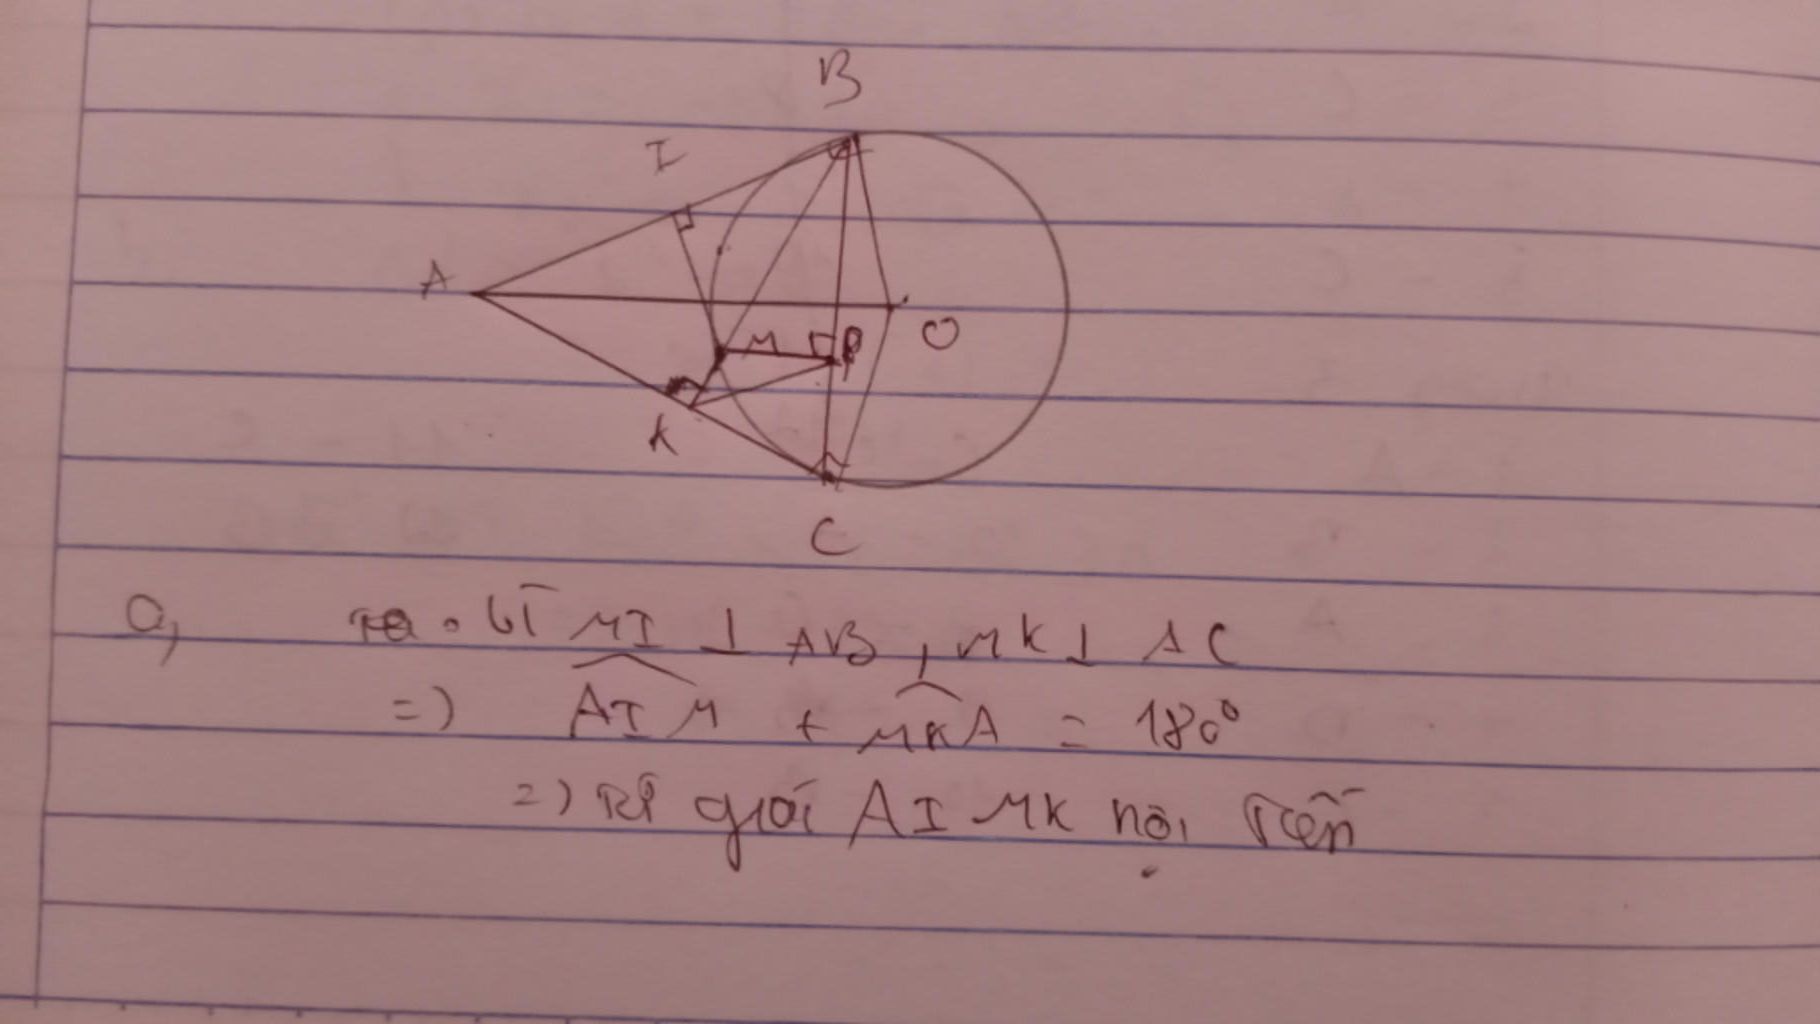 B
I
A
M
P
O
K
C
a, Ta có MI ⊥ AB, MK ⊥ AC
=) AIM + MKA = 180°
=) Tứ giác AIMK nội tiếp